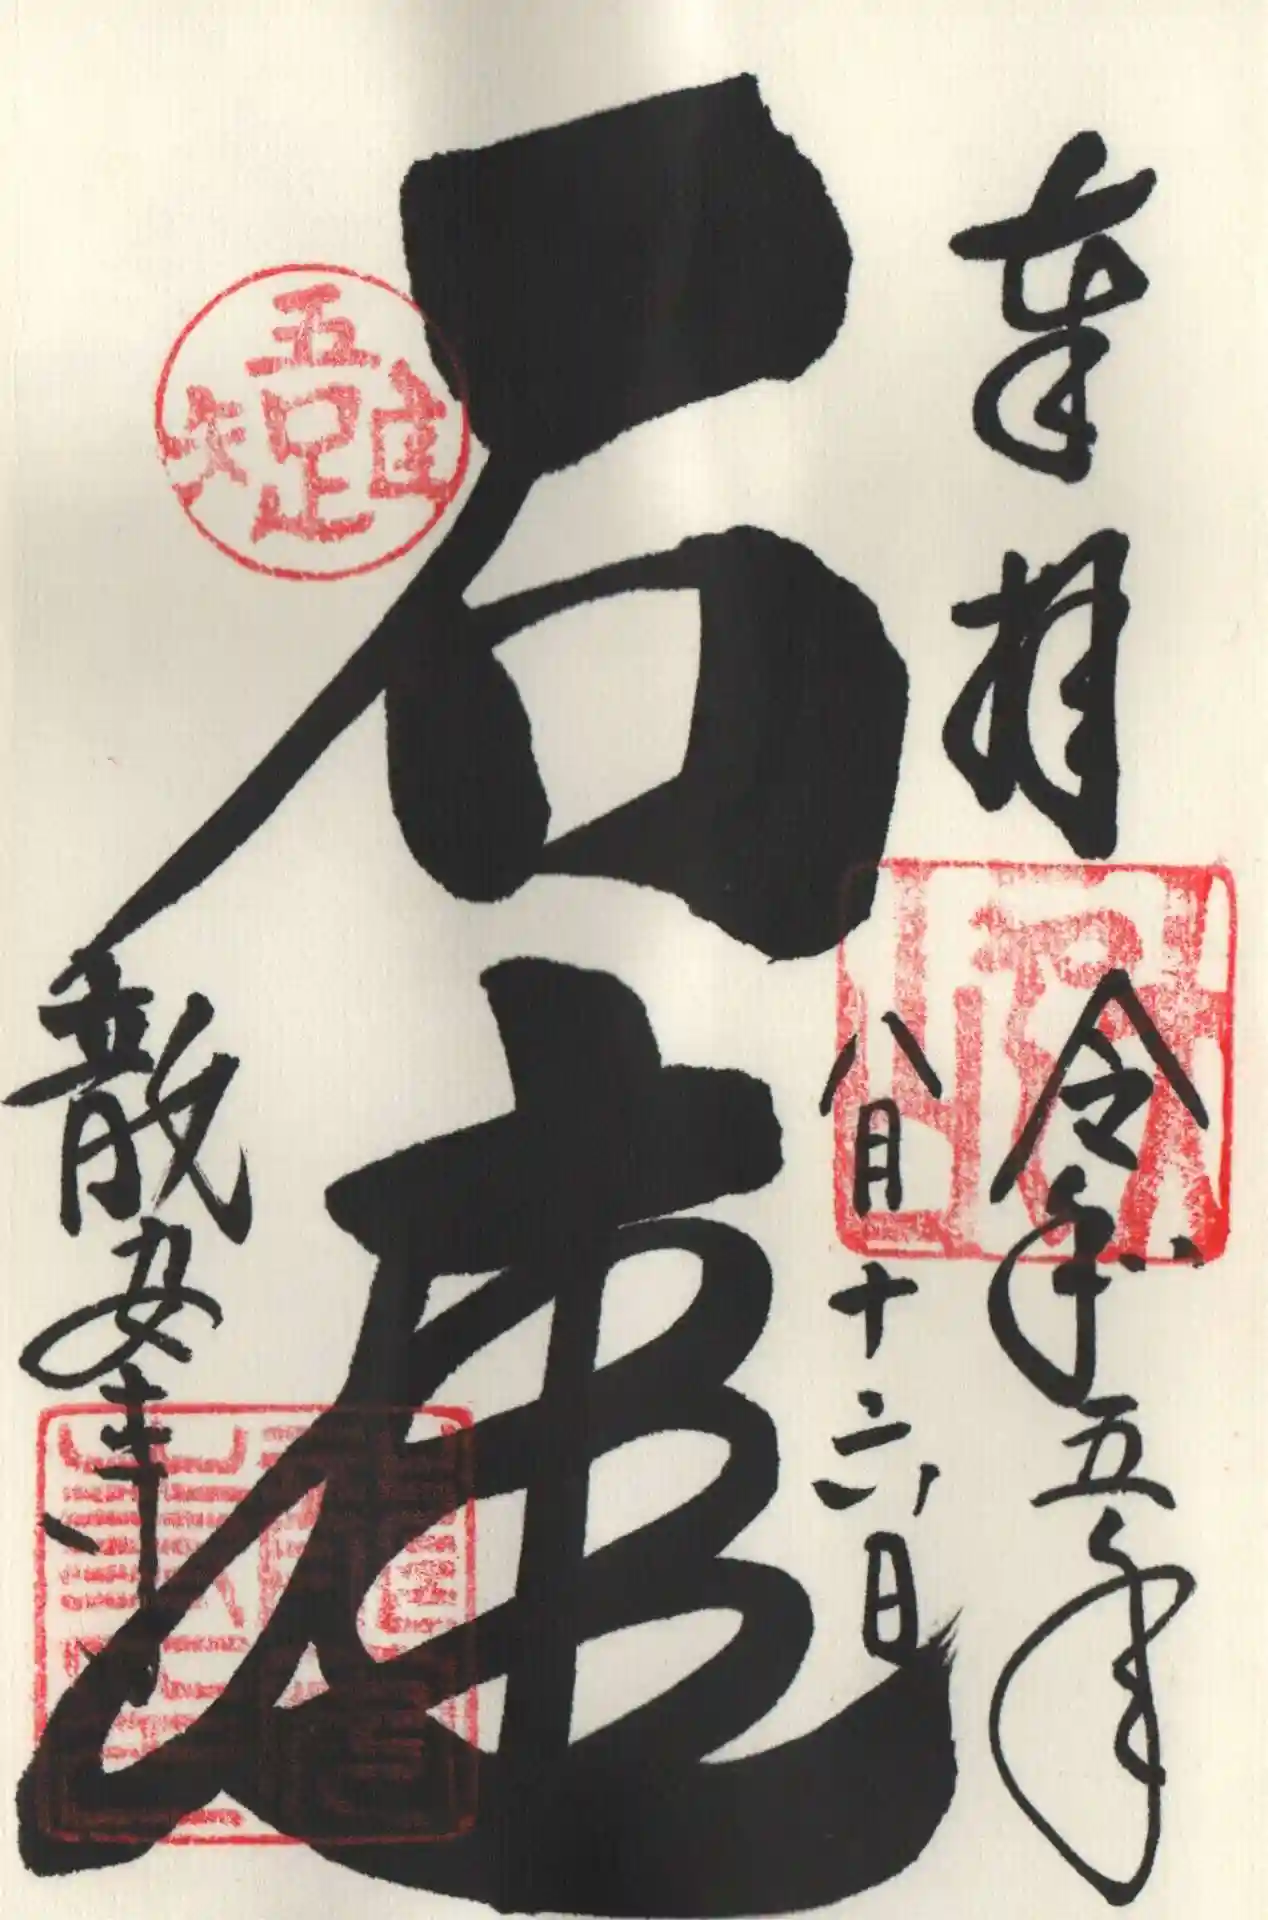 奉拝
令和五年
八月十六日
石庭
吾唯足知
龍安寺